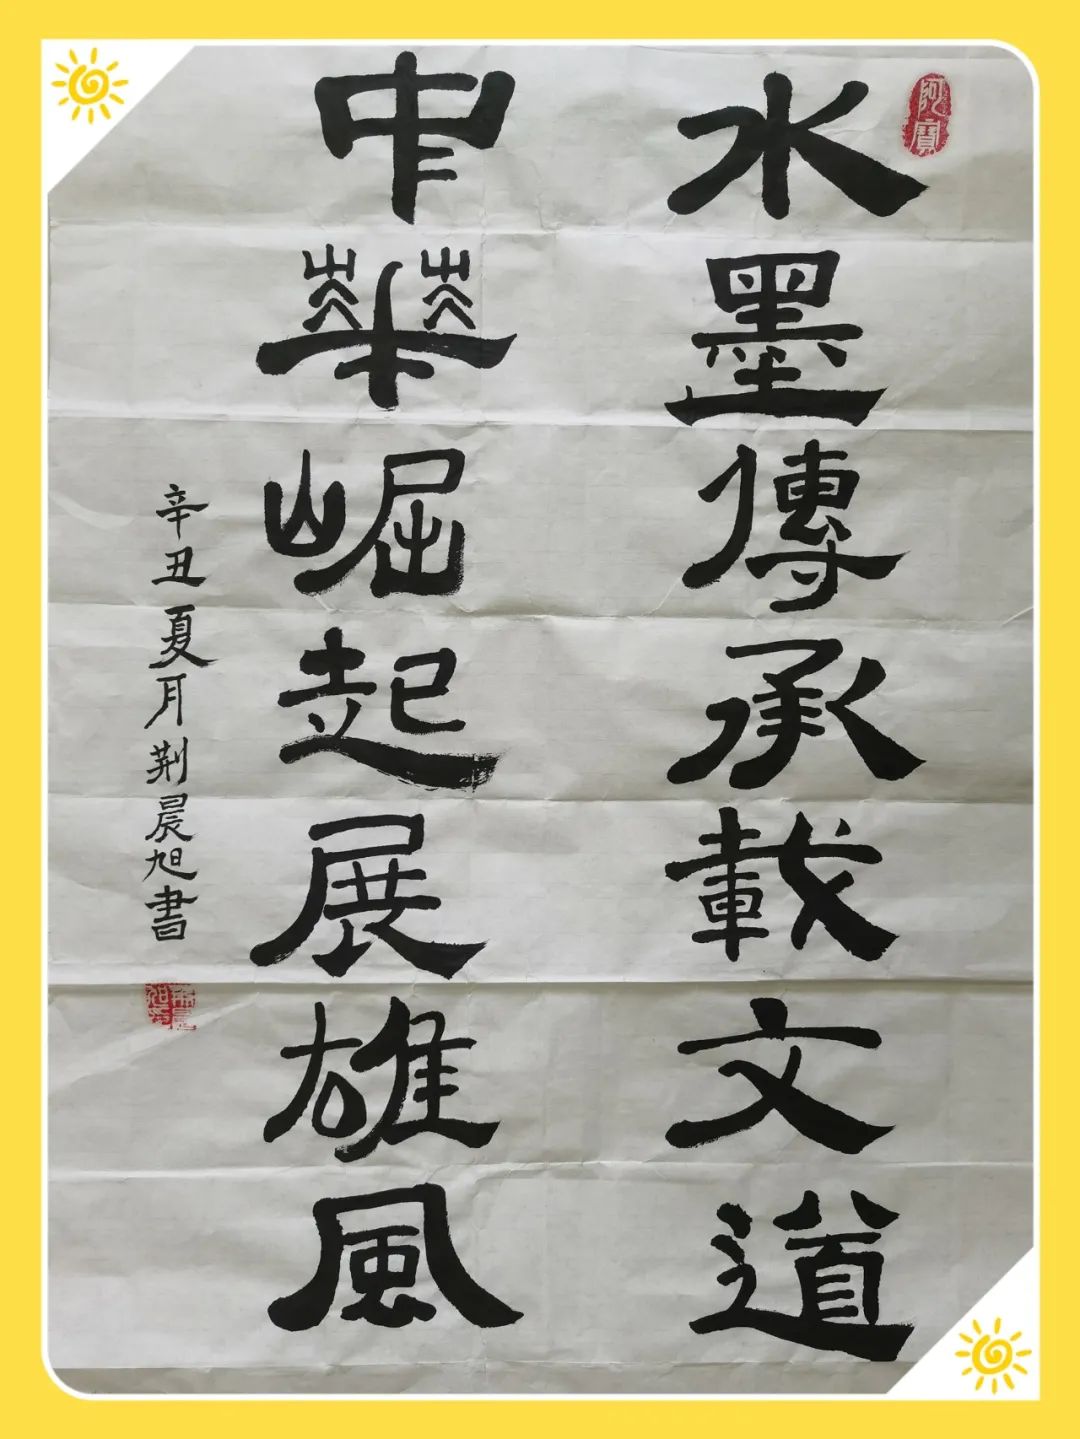 阿寶
水墨傳承載文道
中華崛起展雄風
辛丑夏月荆晨旭書